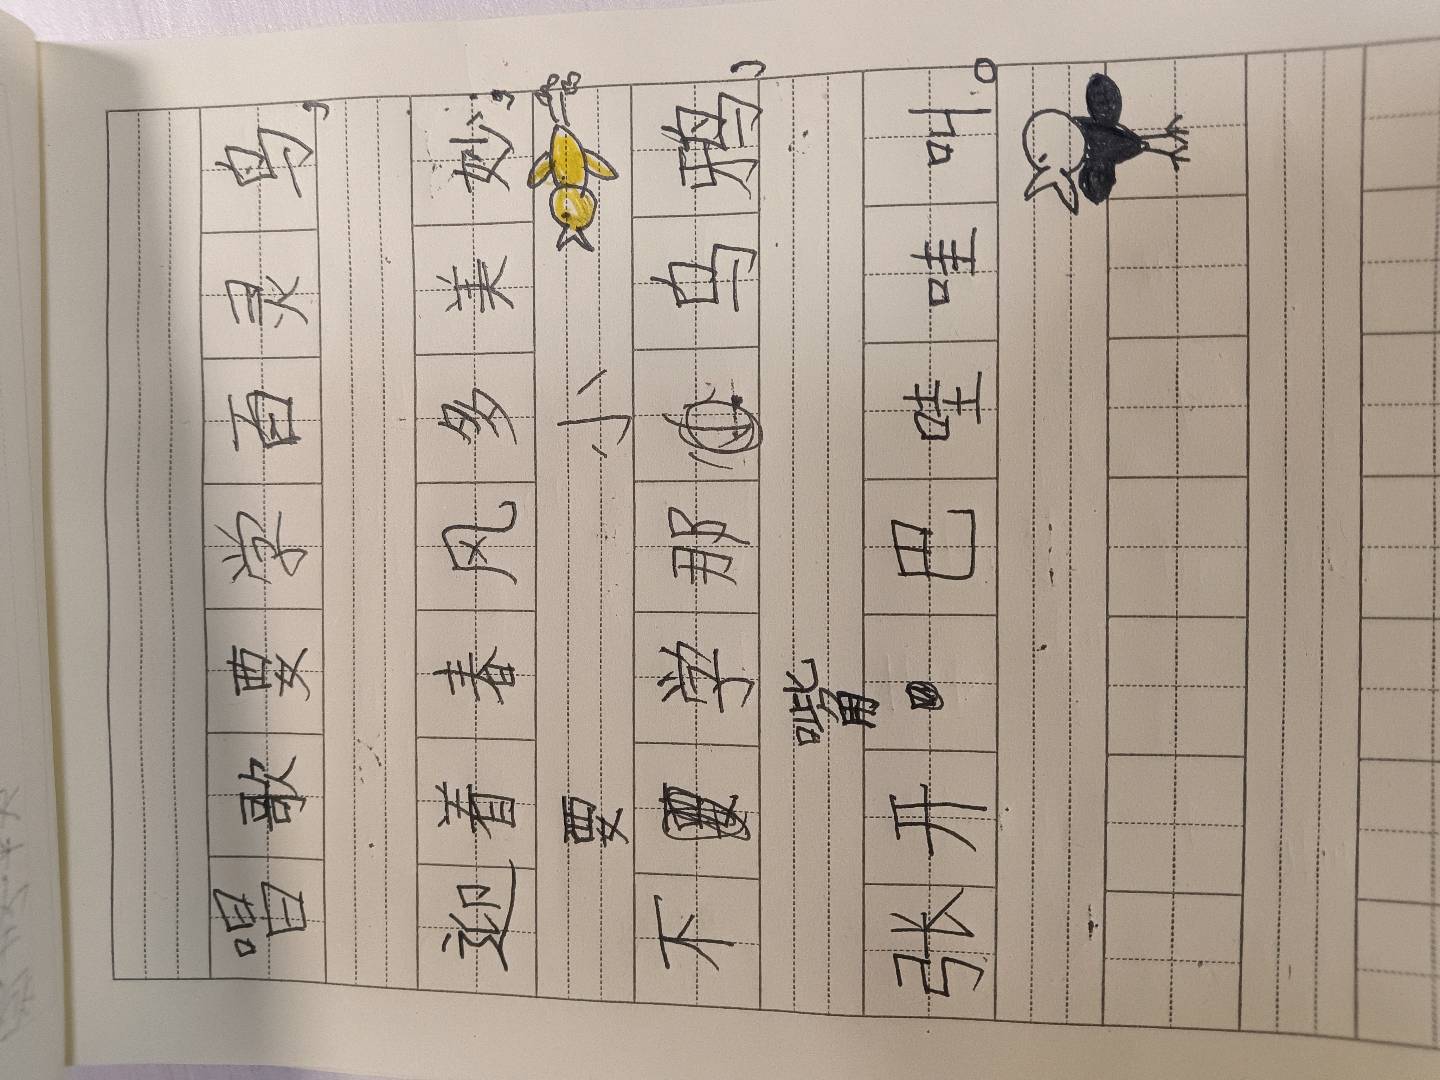 唱歌要学百灵鸟，
迎着春风多美妙；
不要学那小乌鸦，
张开嘴巴哇哇叫。